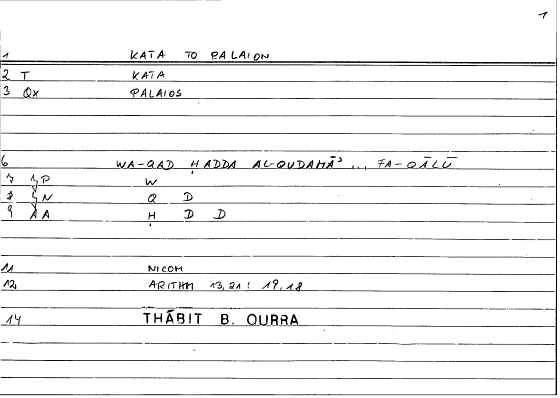 1
1 KATA TO PALAION
2 T KATA
3 Qx PALAIOS
6 WA-QAD ḤADDA AL-QUDAMĀʾ ... FA-QĀLŪ
7 P W
8 N Q D
9 A Ḥ D D
11 NICOM
12 ARITHM 13,21 : 19,18
14 THĀBIT B. QURRA